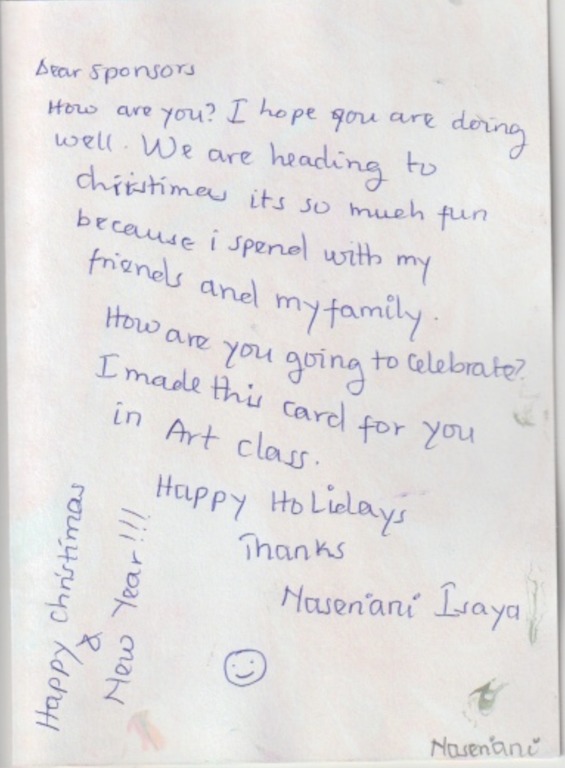 Dear sponsors
How are you? I hope you are doing
well. We are heading to
christimas its so much fun
because i spend with my
friends and my family.
How are you going to celebrate?
I made this card for you
in Art class.
Happy Holidays
Thanks
Naseriani Isaya
Happy Christimas
&
New Year!!!
Naseriani